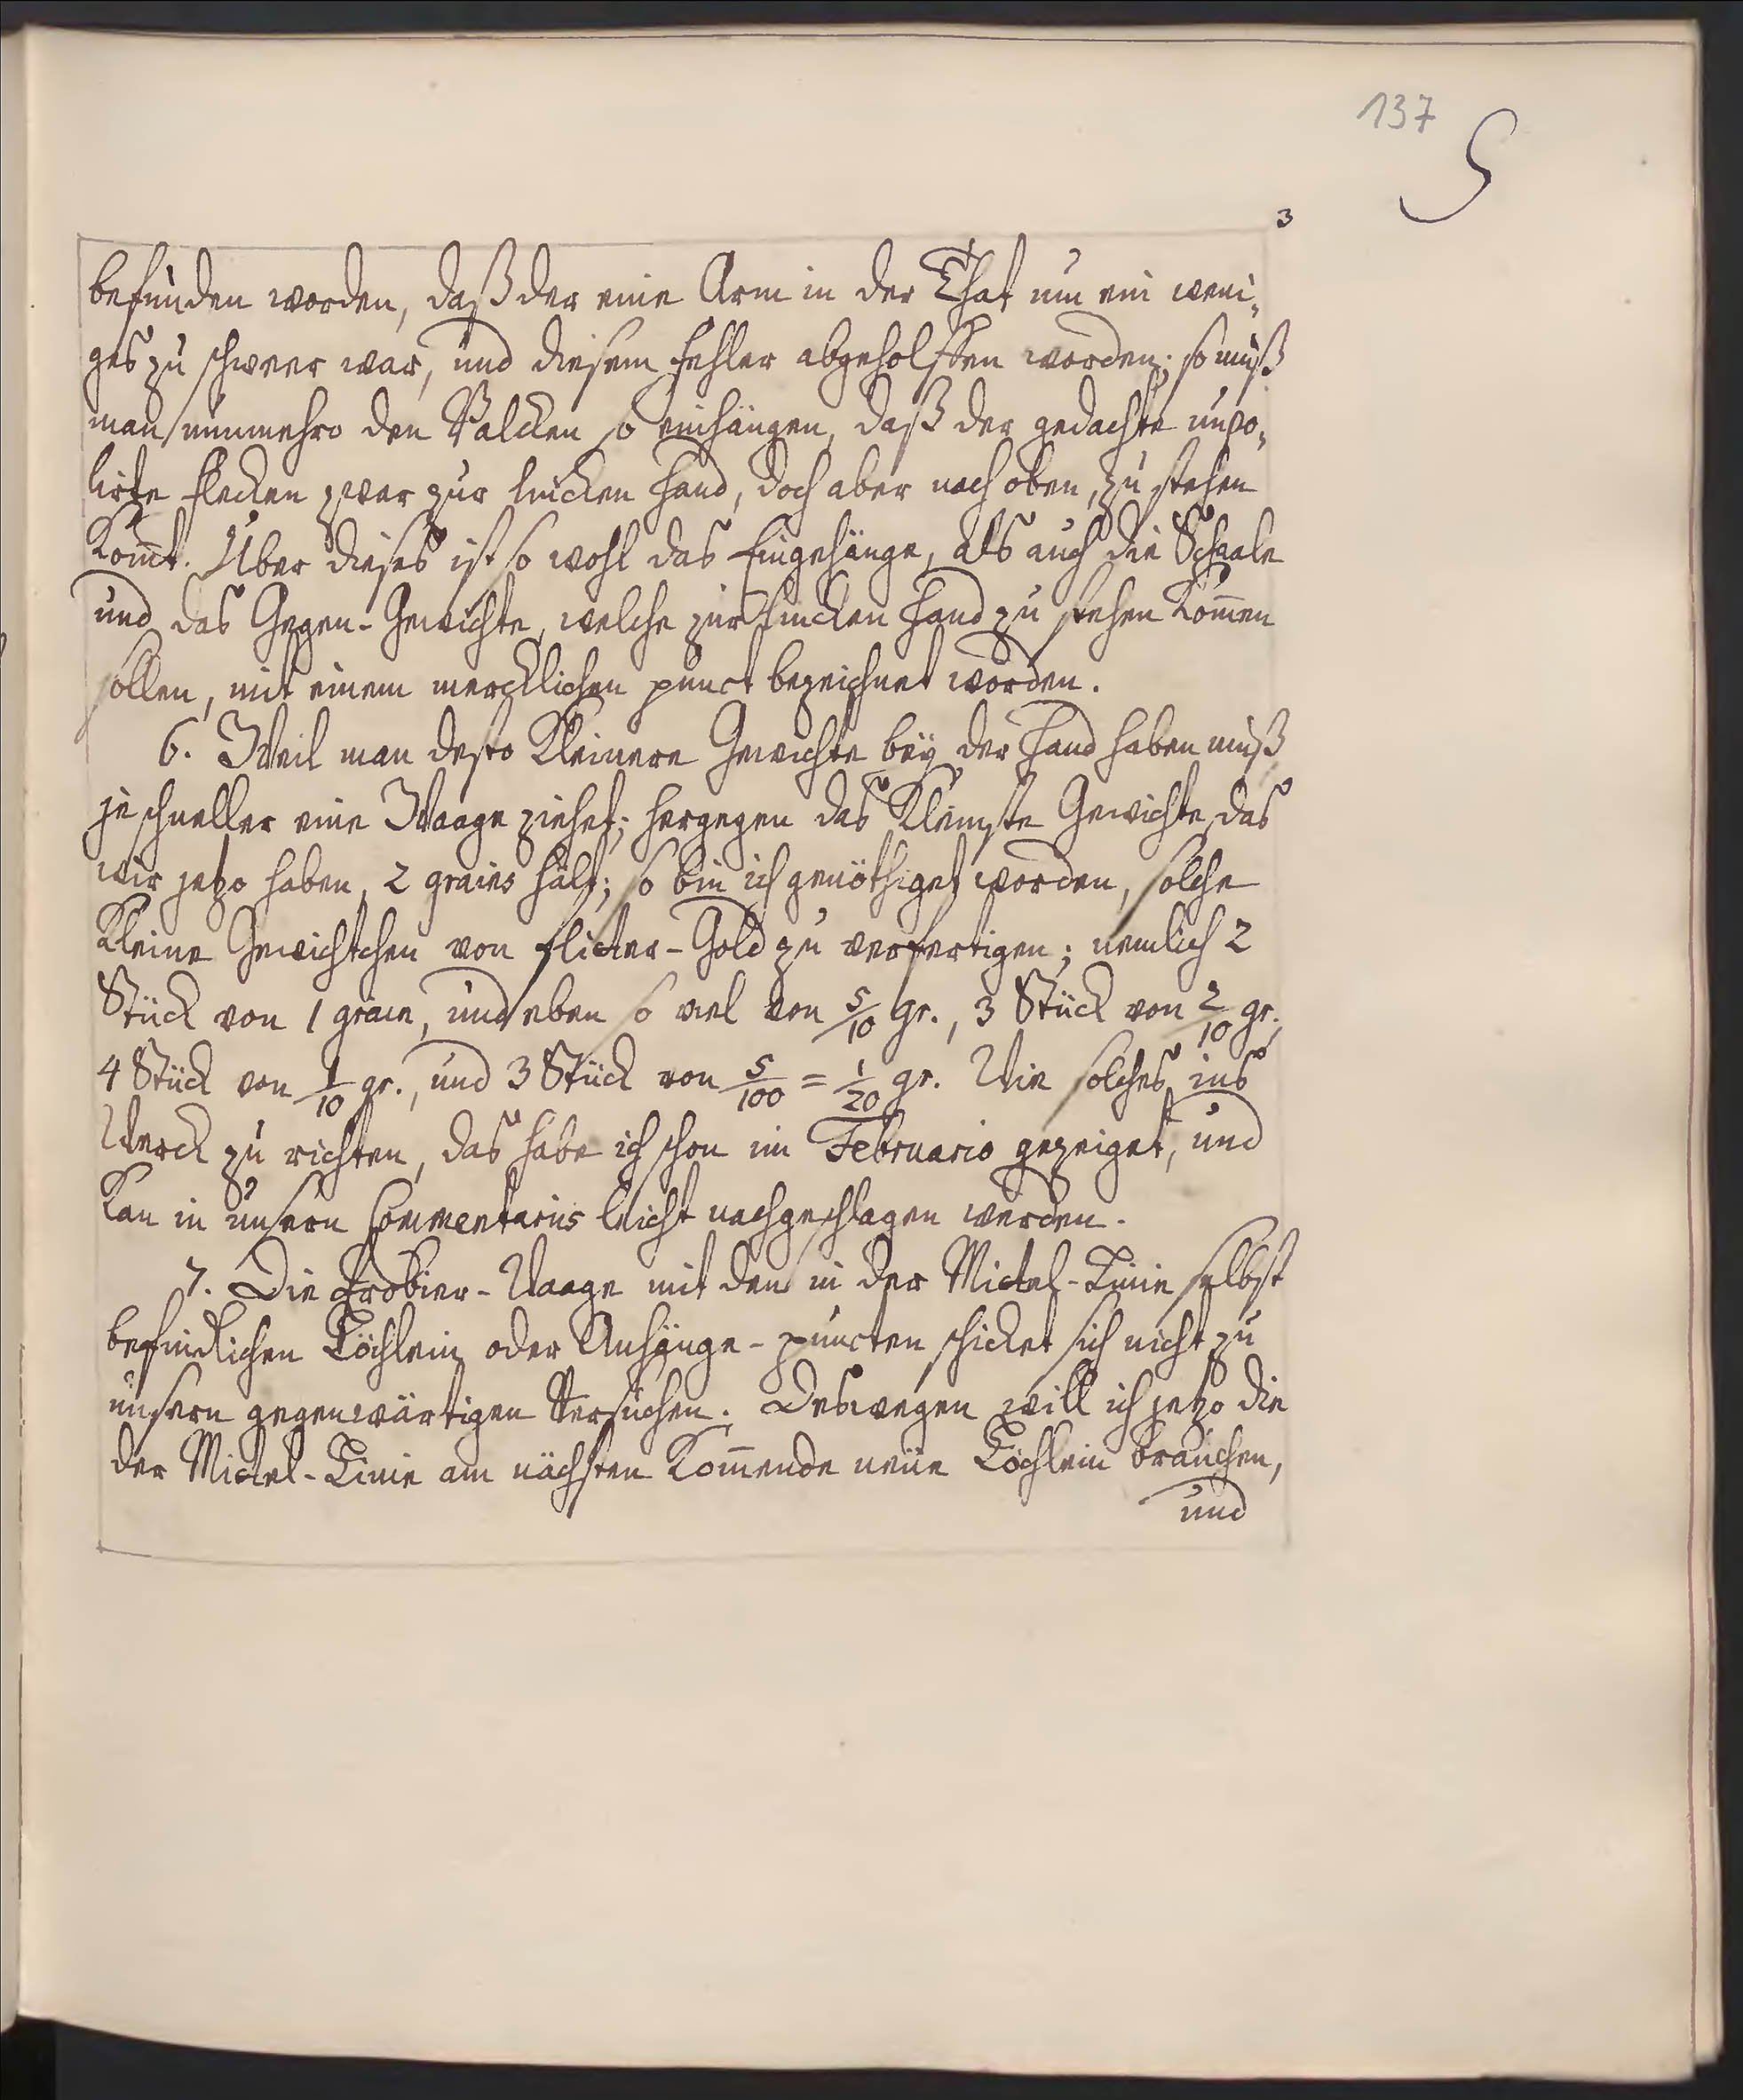 137
5
3
befunden worden, daß der eine Arm in der That um ein weni-
ges zu schwer war, und diesem Fehler abgeholffen worden; so muß
man nunmehro den Balcken so einhängen, daß der gedachte unpo-
lirte Flecken zwar zur lincken Hand, doch aber nach oben, zu stehen
kom̄t. Über dieses ist so wohl das Eingehänge, als auch die Schaale
und das Gegen-Gewichte, welche zur lincken Hand zu stehen kom̄en
sollen, mit einem mercklichen punct bezeichnet worden.
6. Weil man desto kleinere Gewichte bey der Hand haben muß
je schneller eine Waage ziehet; hergegen das kleinste Gewichte, das
wir jetzo haben, 2 grains hält; so bin ich genöthiget worden, solche
kleine Gewichtchen von Flitter-Gold zu verfertigen; nemlich 2
Stück von 1 grain, und eben so viel von 5/10 gr., 3 Stück von 2/10 gr.,
4 Stück von 1/10 gr., und 3 Stück von 5/100 = 1/20 gr. Wie solches ins
Werck zu richten, das habe ich schon im Februario gezeiget, und
kan in unsern Commentariis leicht nachgeschlagen werden.
7. Die Probier-Waage mit den in der Mittel-Linie selbst
befindlichen Löchlein oder Anhänge-puncten schicket sich nicht zu
unsern gegenwärtigen Versuchen. Deswegen will ich jetzo die
der Mittel-Linie am nächsten kom̄ende neue Löchlein brauchen,
und